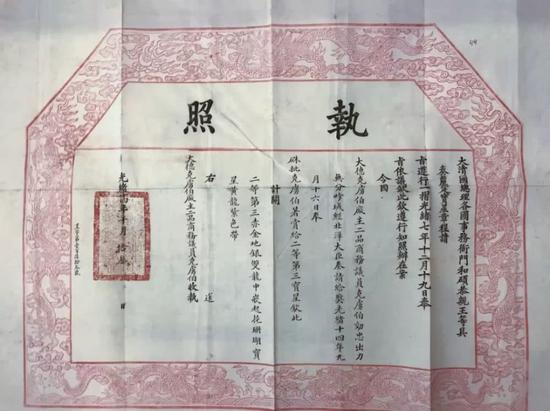 執照
大清國總理各國事務衙門和碩恭親王等具
寶星章程請
旨遵行一摺光緒七年十二月十九日奉
旨依議欽此欽遵行知照辦在案
今因
大德克虜伯廠主二品商務議員克虜伯効忠出力
無分畛域經北洋大臣奏請給獎光緒十四年九
月十六日奉
硃批克虜伯著賞給二等第三寶星欽此
計開
二等第三赤金地銀雙龍中嵌起花珊瑚寶
星黃龍紫色帶
右 送
大德克虜伯廠主二品商務議員克虜伯收執
光緒 年十月拾 日